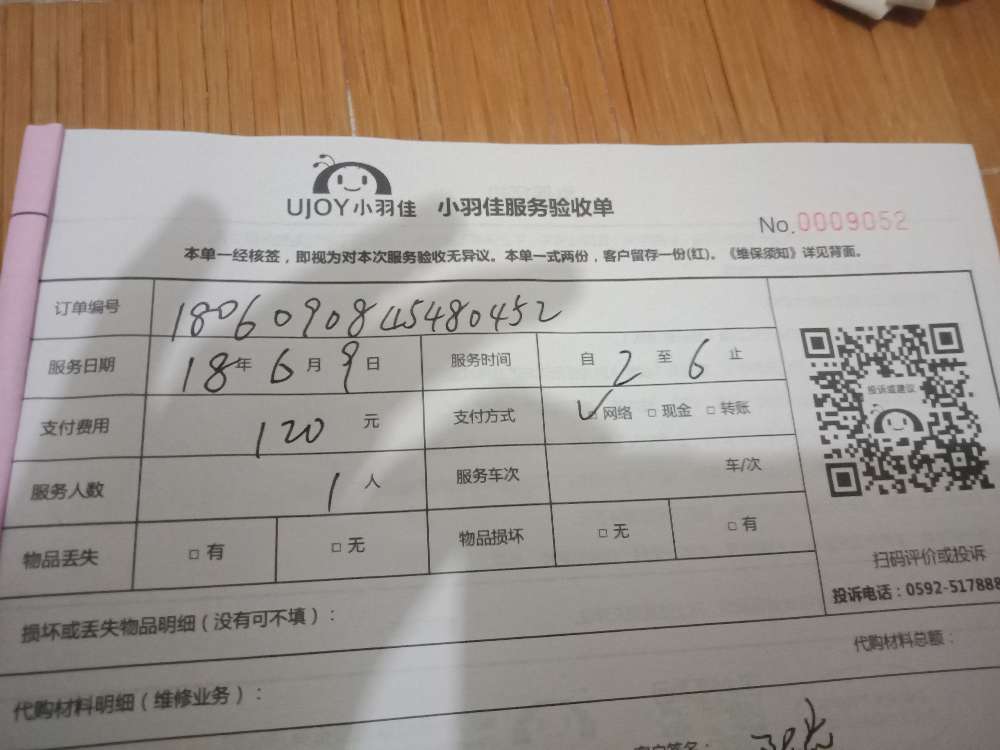 UJOY小羽佳 小羽佳服务验收单
No.0009052
本单一经核签，即视为对本次服务验收无异议。本单一式两份，客户留存一份(红)。《维保须知》详见背面。
订单编号 1806090845480452
服务日期 18年6月9日 服务时间 自2至6止
支付费用 120元 支付方式 ☑网络 □现金 □转账
投诉或建议
服务人数 1人 服务车次 车/次
物品丢失 □有 □无 物品损坏 □无 □有
扫码评价或投诉
投诉电话：0592-517888
损坏或丢失物品明细（没有可不填）：
代购材料总额：
代购材料明细（维修业务）：
客户签名：